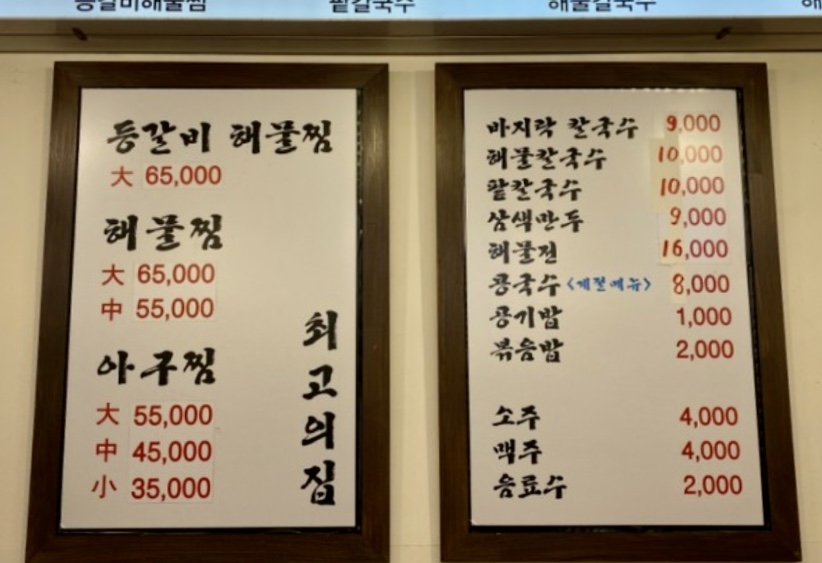 등갈비해물찜 팥칼국수 해물칼국수
등갈비 해물찜
大 65,000
해물찜
大 65,000
中 55,000
아구찜
大 55,000
中 45,000
小 35,000
최고의집
바지락 칼국수 9,000
해물칼국수 10,000
팥칼국수 10,000
삼색만두 9,000
해물전 16,000
콩국수 <계절메뉴> 8,000
공기밥 1,000
볶음밥 2,000
소주 4,000
맥주 4,000
음료수 2,000